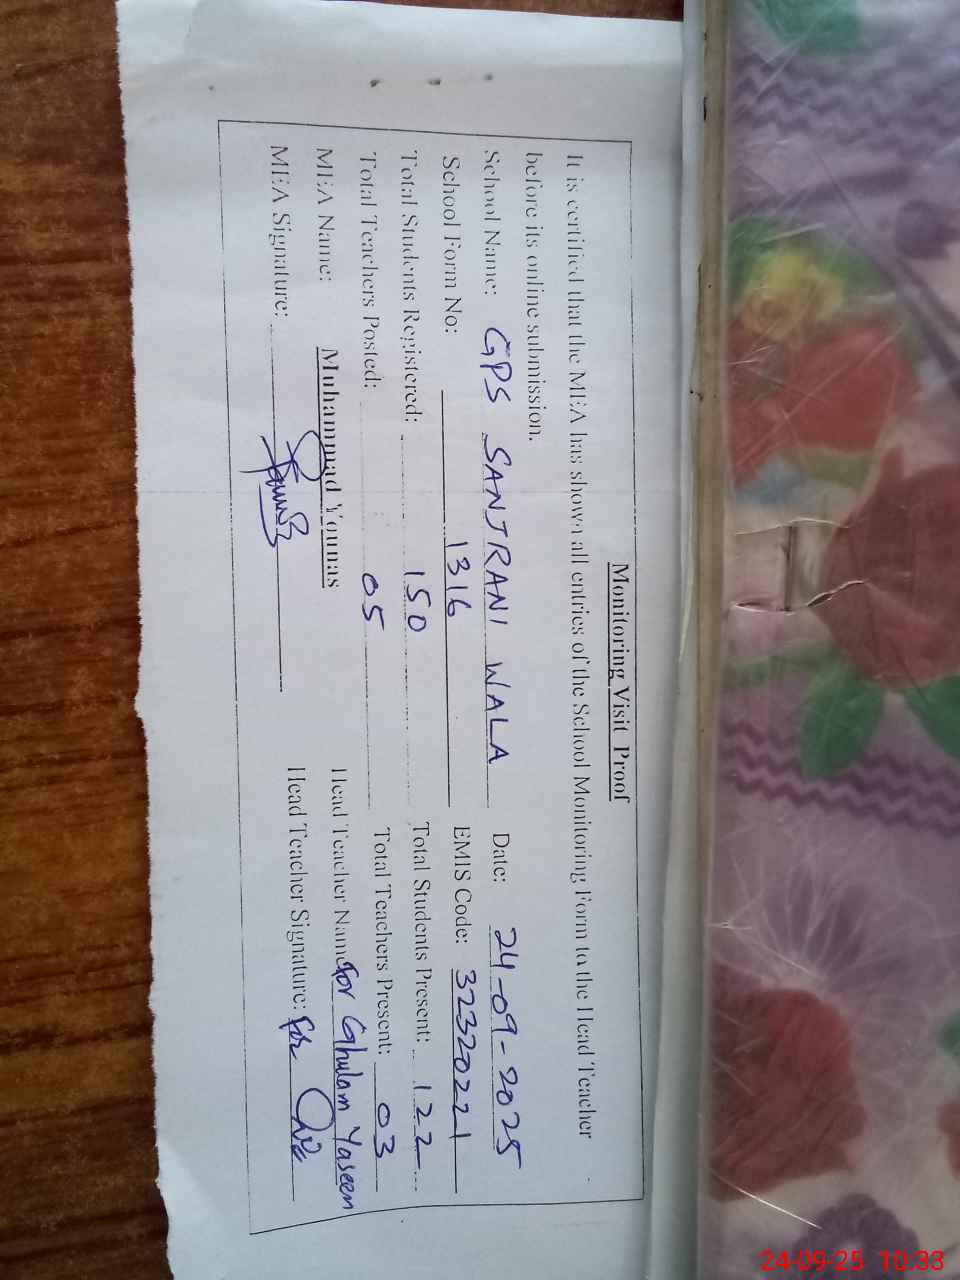 Monitoring Visit Proof
It is certified that the MEA has shown all entries of the School Monitoring Form to the Head Teacher
before its online submission.
School Name: GPS SANJRANI WALA Date: 24-09-2025
School Form No: 1316 EMIS Code: 32320221
Total Students Registered: 150 Total Students Present: 122
Total Teachers Posted: 05 Total Teachers Present: 03
MEA Name: Muhammad Younas Head Teacher Name: for Ghulam Yaseen
MEA Signature: Head Teacher Signature: for
24-09-25 10:33